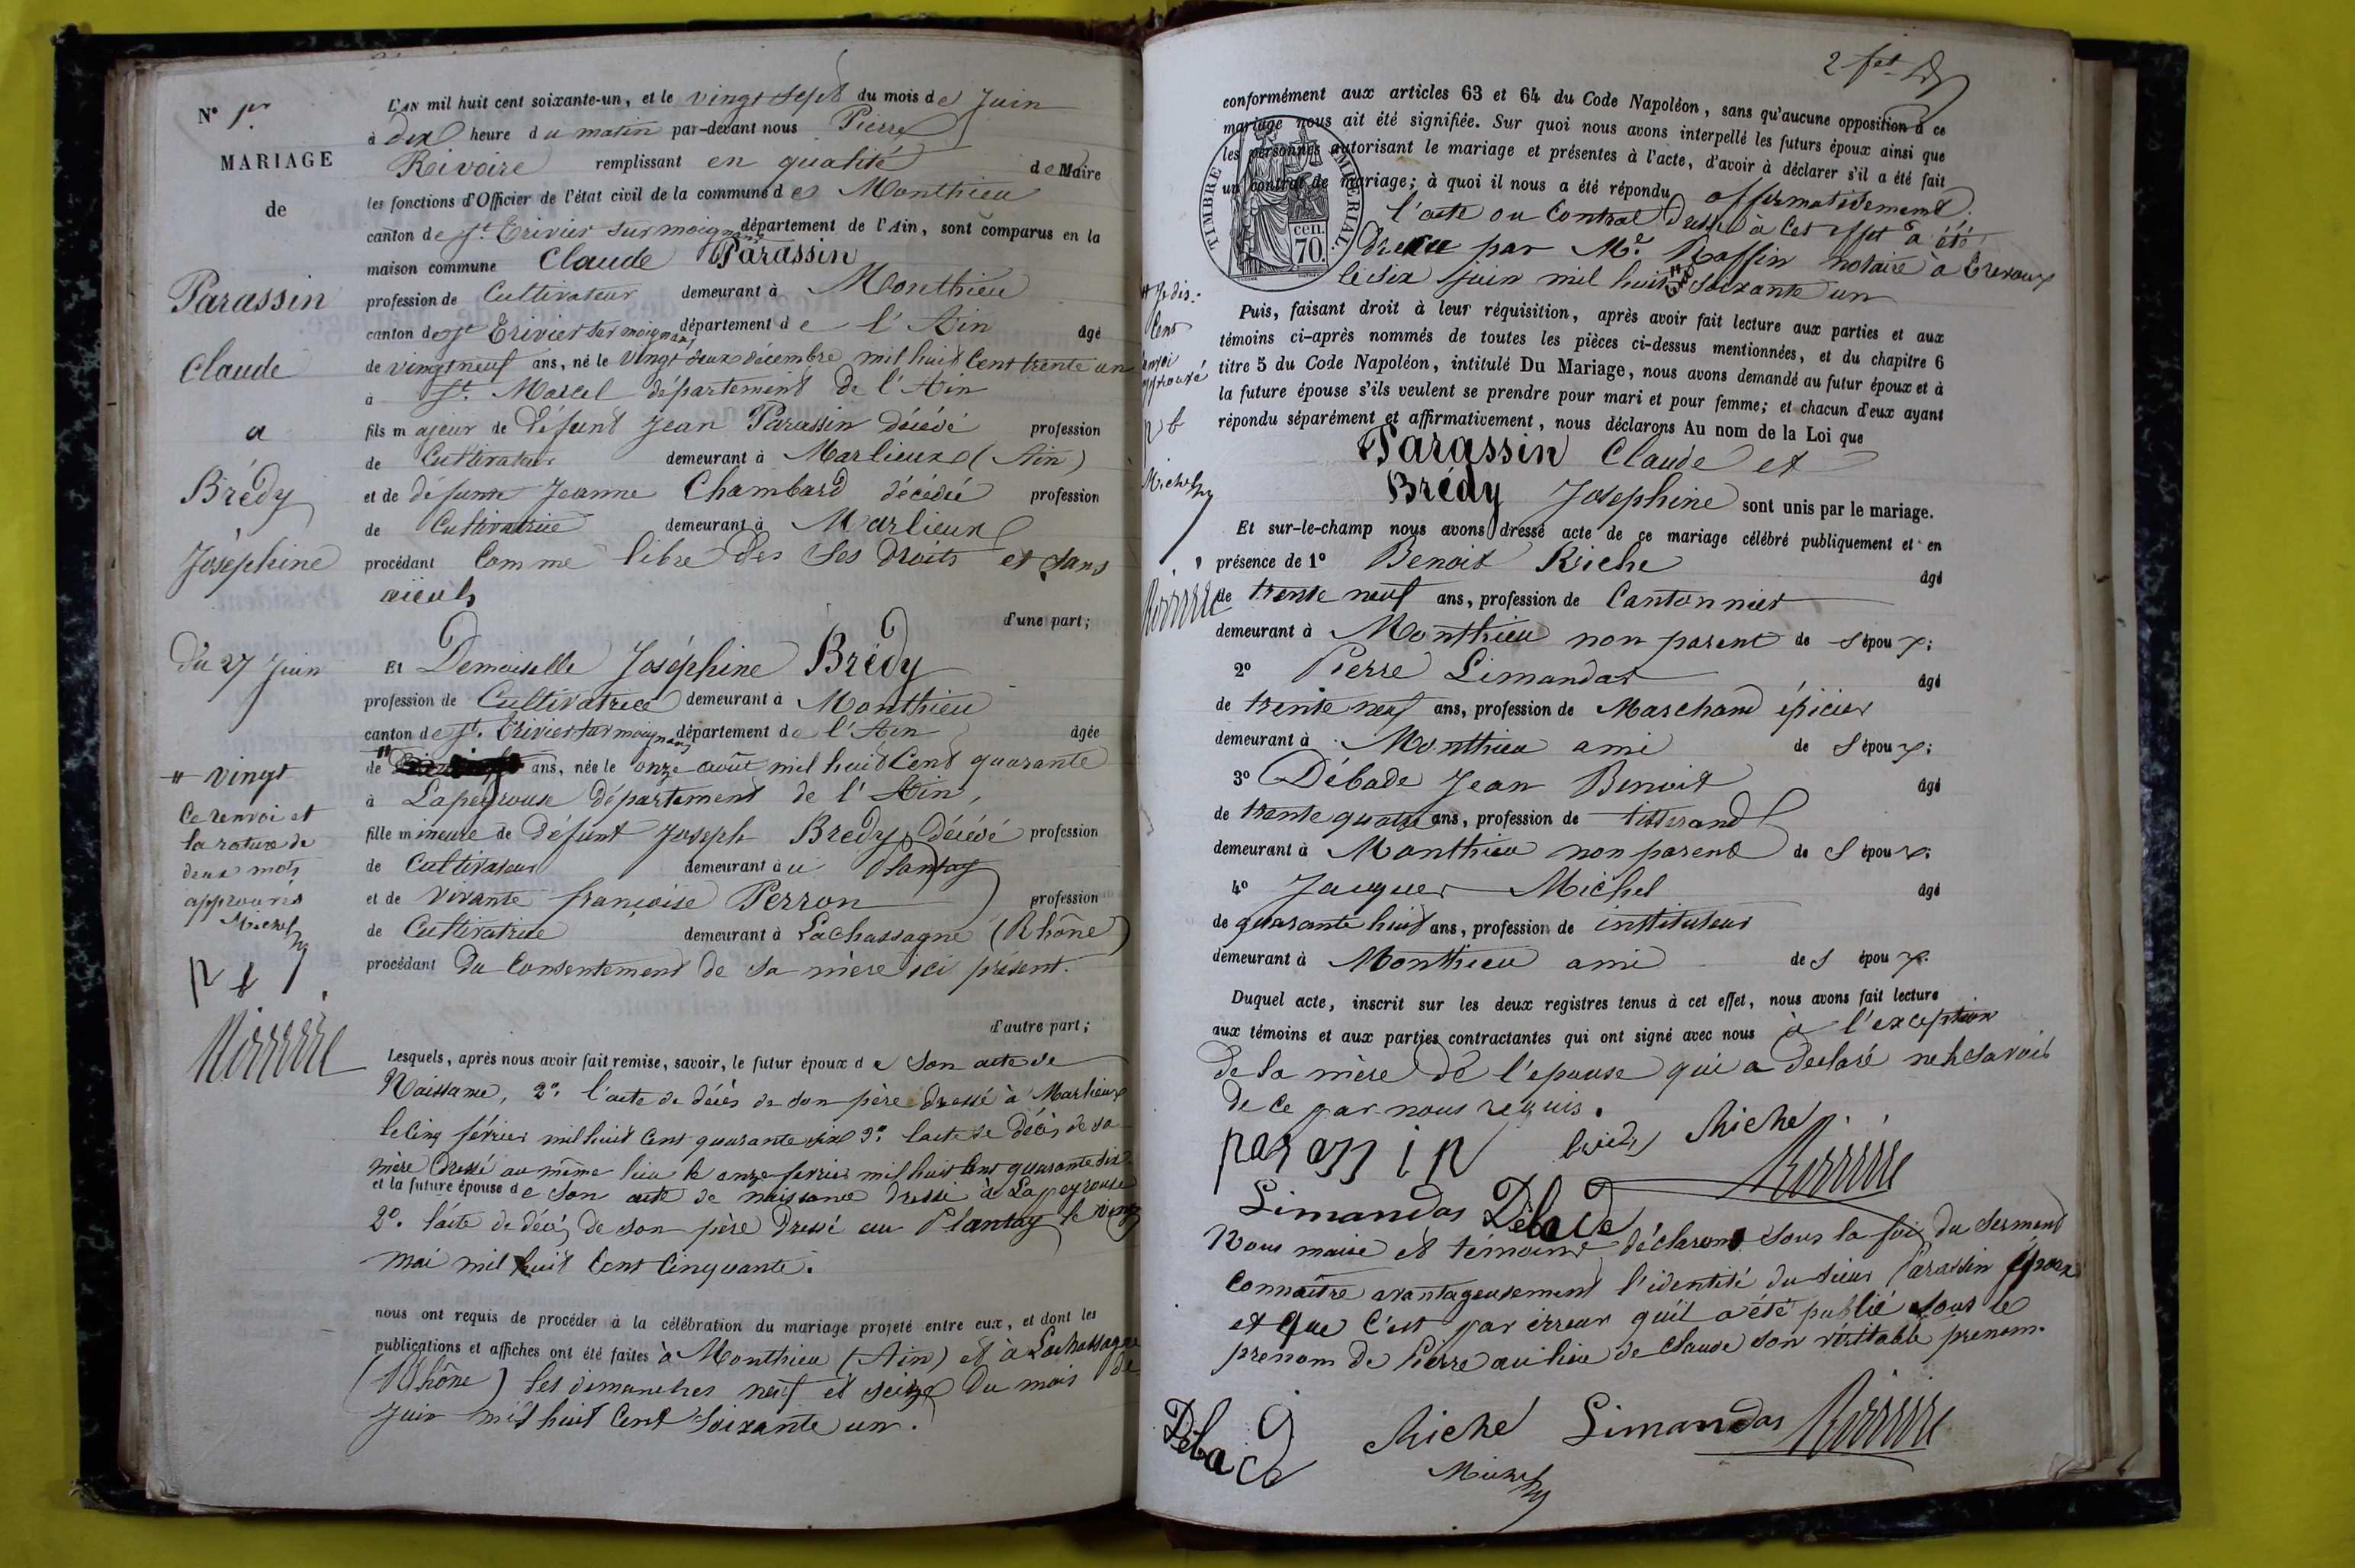 N° 1er
MARIAGE
de
Parassin
Claude
a
Brédy
Joséphine
Du 27 Juin
# vingt
Ce renvoi et
la rature de
deux mots
approuvés
Michel
L'AN mil huit cent soixante-un, et le vingt sept du mois de Juin
à dix heure du matin par-devant nous Pierre
Rivoire remplissant en qualité de Maire
les fonctions d'Officier de l'état civil de la commune de Monthieu
canton de St. Trivier sur moignans département de l'Ain, sont comparus en la
maison commune Claude Parassin
profession de Cultivateur demeurant à Monthieu
canton de St Trivier sur moignans département de l'Ain âgé
de vingt neuf ans, né le vingt deux décembre mil huit Cent trente un
à St. Marcel département de l'Ain
fils majeur de défunt Jean Parassin décédé profession
de Cultivateur demeurant à Marlieux (Ain)
et de défunte Jeanne Chambard décédée profession
de Cultivatrice demeurant à Marlieux
procédant Comme libre des ses droits et sans
aieuls
d'une part;
Et Demoiselle Joséphine Brédy
profession de Cultivatrice demeurant à Monthieu
canton de St. Trivier sur moignans département de l'Ain âgée
de # ans, née le onze août mil huit Cent quarante
à Lapeyrouse département de l'Ain,
fille mineure de défunt Joseph Brédy décédé profession
de Cultivateur demeurant au Plantay
et de vivante françoise Perron profession
de Cultivatrice demeurant à Lachassagne (Rhône)
procédant du Consentement de sa mère ici présent.
d'autre part;
Lesquels, après nous avoir fait remise, savoir, le futur époux de son acte de
Naissance, 2° l'acte de décès de son père dressé à Marlieux
le Cinq février mil huit Cent quarante six 3° l'acte de décès de sa
mère dressé au même lieu le onze février mil huit Cent quarante six
et la future épouse de son acte de naissance dressé à Lapeyrouse
2° l'acte de décès de son père dressé au Plantay le vingt
mai mil huit Cent Cinquante.
nous ont requis de procéder à la célébration du mariage projeté entre eux, et dont les
publications et affiches ont été faites à Monthieu (Ain) et à Lachassagne
(Rhône) les dimanches neuf et seize du mois de
Juin mil huit Cent soixante un.
conformément aux articles 63 et 64 du Code Napoléon, sans qu'aucune opposition à ce
mariage nous ait été signifiée. Sur quoi nous avons interpellé les futurs époux ainsi que
les personnes autorisant le mariage et présentes à l'acte, d'avoir à déclarer s'il a été fait
un contrat de mariage; à quoi il nous a été répondu affirmativement.
l'acte ou Contrat dressé à cet effet a été
dressé par Me. Raffin notaire à Trevoux
le six Juin mil huit Cent soixante un
TIMBRE IMPÉRIAL.
70 cen.
# Je dis:
Cent
renvoi
approuvé
Michel
Puis, faisant droit à leur réquisition, après avoir fait lecture aux parties et aux
témoins ci-après nommés de toutes les pièces ci-dessus mentionnées, et du chapitre 6
titre 5 du Code Napoléon, intitulé Du Mariage, nous avons demandé au futur époux et à
la future épouse s'ils veulent se prendre pour mari et pour femme; et chacun d'eux ayant
répondu séparément et affirmativement, nous déclarons Au nom de la Loi que
Parassin Claude et
Brédy Joséphine sont unis par le mariage.
Et sur-le-champ nous avons dressé acte de ce mariage célébré publiquement et en
présence de 1° Benoit Riche âgé
de trente neuf ans, profession de Cantonnier
demeurant à Monthieu non parent de s époux;
2° Pierre Limandas âgé
de trente neuf ans, profession de Marchand épicier
demeurant à Monthieu ami de s époux;
3° Débade Jean Benoit âgé
de trente quatre ans, profession de tisserand
demeurant à Monthieu non parent de s époux;
4° Jacques Michel âgé
de quarante huit ans, profession de instituteur
demeurant à Monthieu ami de s époux.
Duquel acte, inscrit sur les deux registres tenus à cet effet, nous avons fait lecture
aux témoins et aux parties contractantes qui ont signé avec nous à l'exception
de la mère de l'épouse qui a déclaré ne le savoir
de ce par nous requis.
parassin Riche
Limandas Débade
Nous maire et témoins déclarons sous la foi du serment
Connaître avantageusement l'identité du sieur Parassin époux
et que C'est par erreur qu'il a été publié sous le
prenom de Pierre au lieu de Claude son véritable prenom.
Débade Riche Limandas Rivoire
Michel